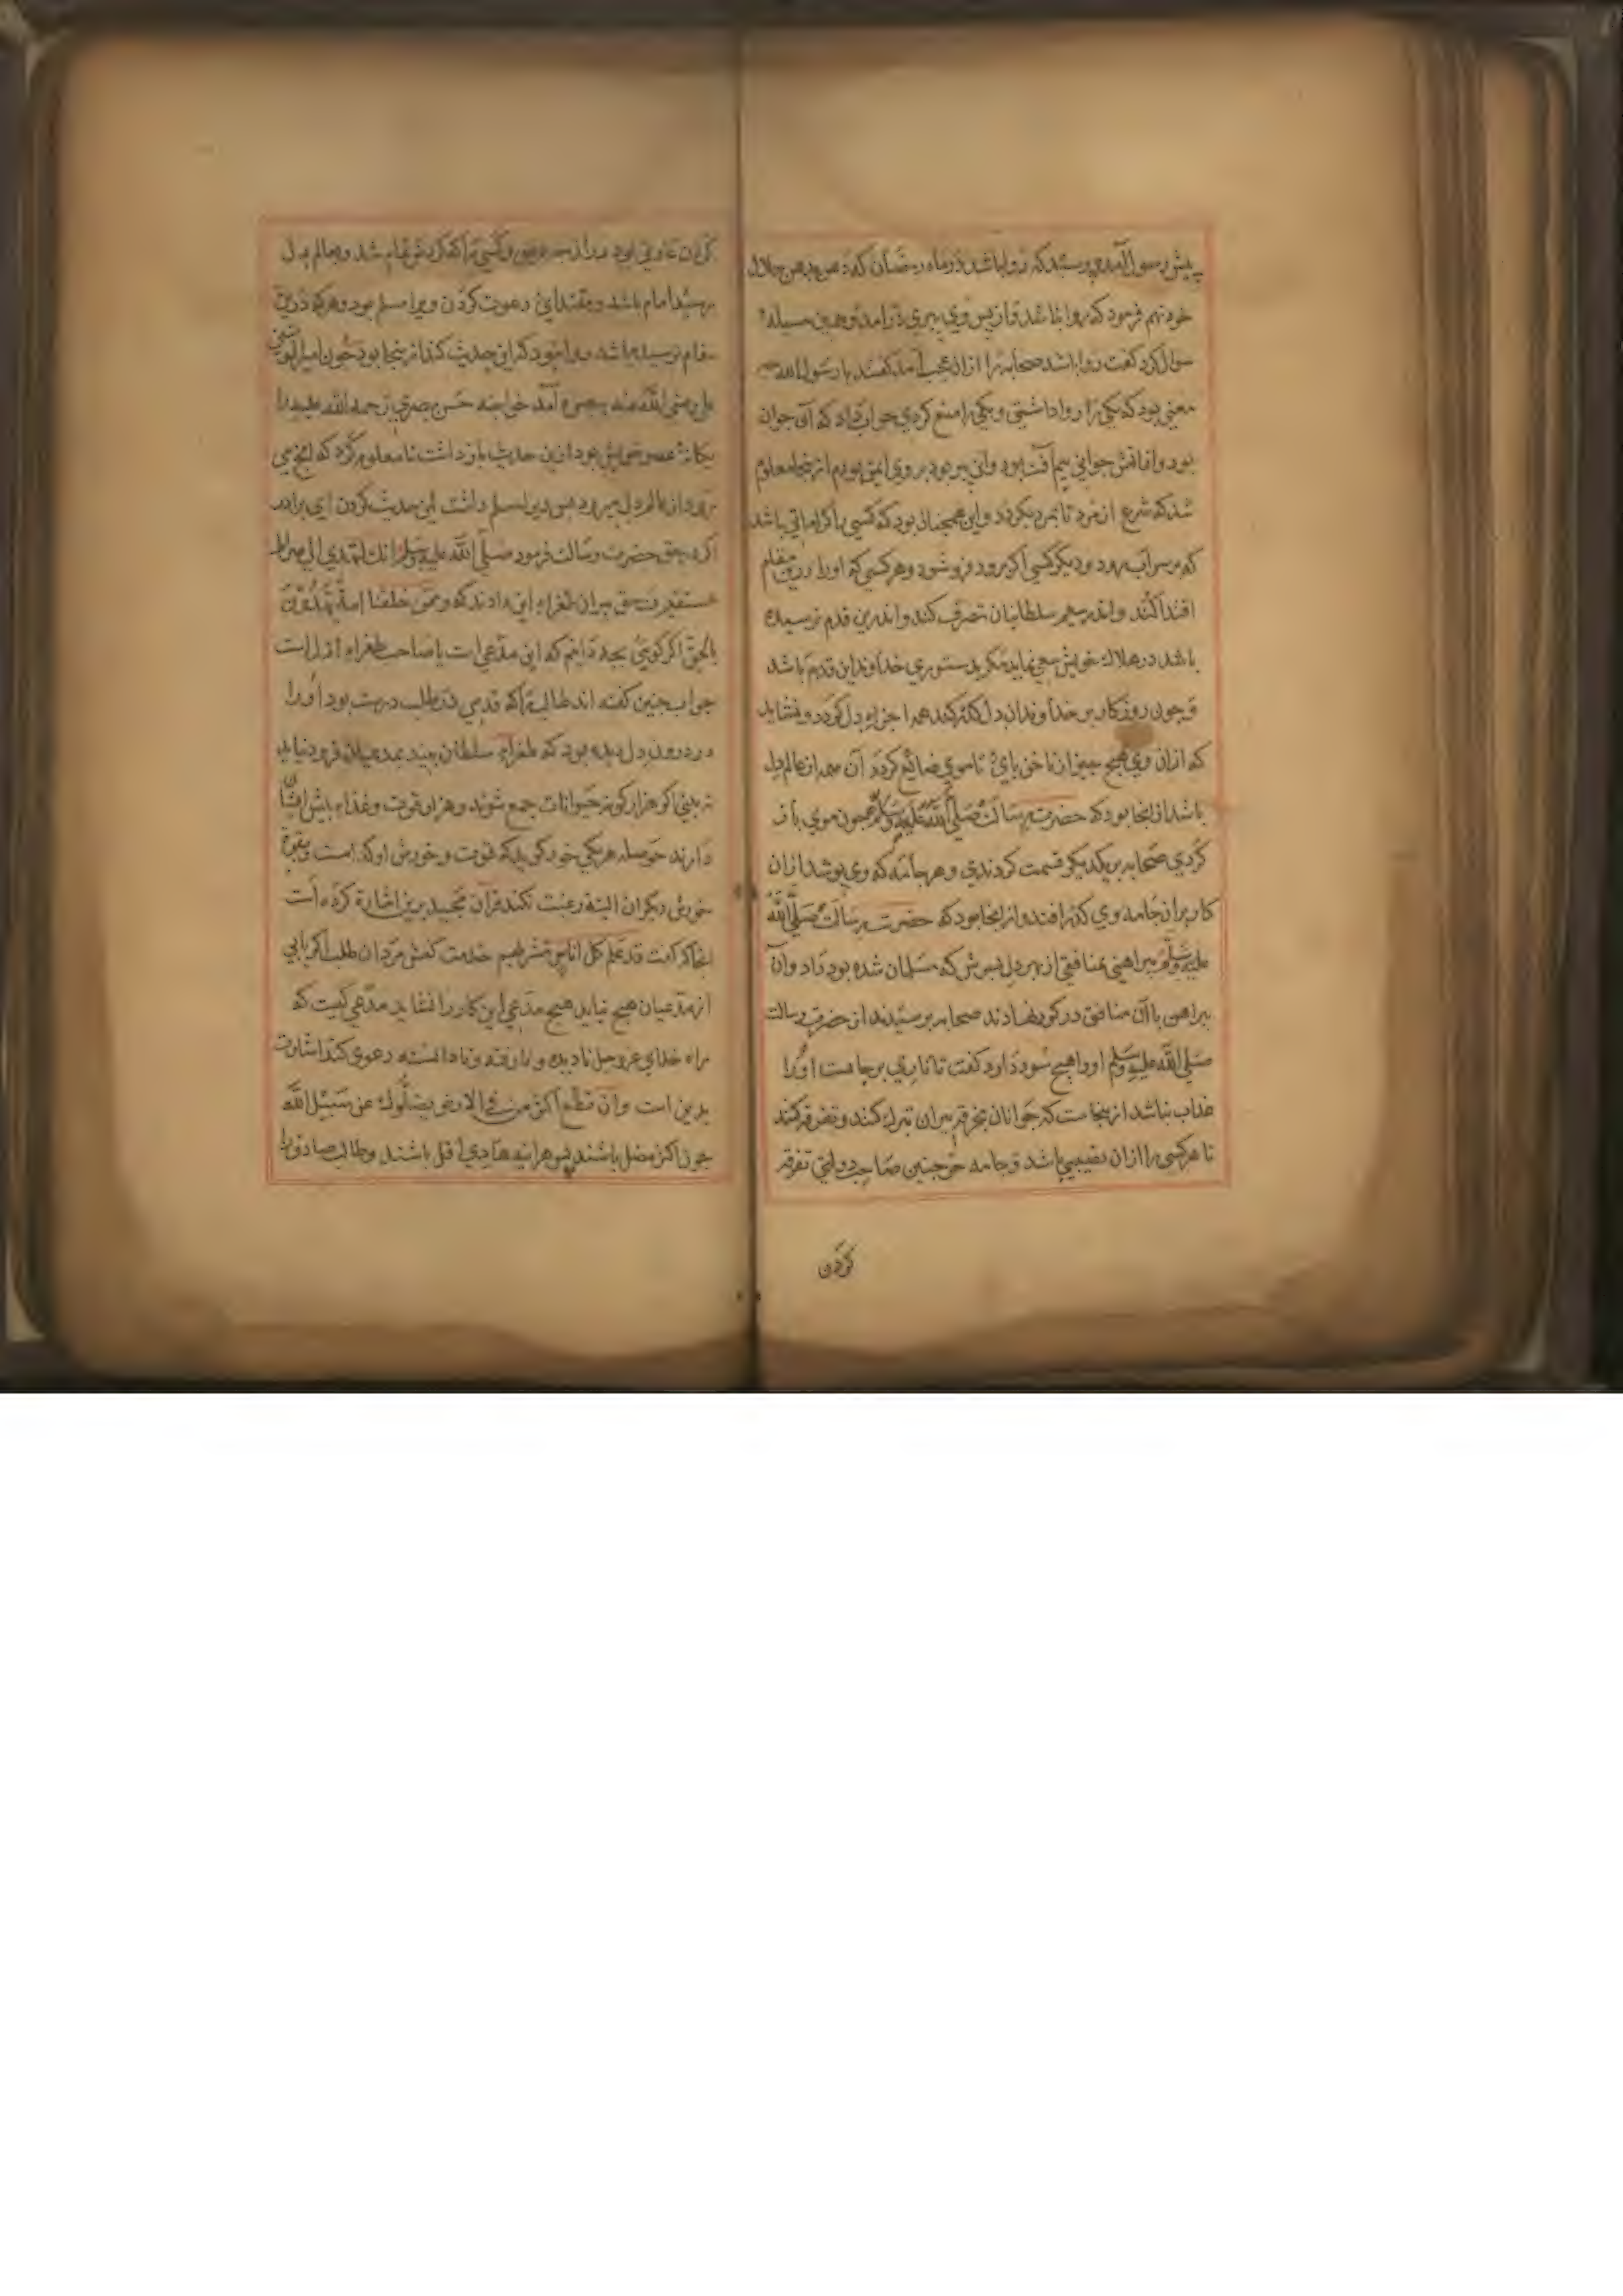 پیش رسول آمد و پرسید که روا باشد در ماه رمضان که دهن بر دهن حلال
خود نهم فرمود که روا نباشد و از پس وی پیری درآمد و همین مسیله
سوال کرد گفت روا باشد صحابه را ازان عجب آمد گفتند یا رسول الله چه
معنی بود که یکی را روا داشتی و یکی را منع کردی جواب داد که آن جوان
بود و از آتش جوانی بیم آفت بود و این پیر بود بر وی ایمن بودم ازینجا معلوم
شد که شرع از مرد تا بمرد بگردد و این همچنان بود که کسی با کراماتی باشد
که بر سر آب برود و دیگر کسی اگر برود فرو شود و هر کسی که او را درین مقام
اقتدا کند و اندر سیم سلطانیان تصرف کند و اندرین قدم نرسیده
باشد در هلاک خویش سعی نماید مگر بدستوری خداوند این قدم باشد
و چون روزگار بر خداوندان دل گذر کند همه اجزاء دل گردد و نشاید
که ازان وی هیچ چیز از ناخن پای تا موی ضایع گردد آن همه از عالم دل
باشد ازینجا بود که حضرت رسالت صلی الله علیه وسلم چون موی باز
کردی صحابه بر یکدیگر قسمت کردندی و هر جامه که وی پوشد ازان
کار بران جامه وی گذر افتد و ازینجا بود که حضرت رسالت صلی الله
علیه وسلم پیراهنی بمنافقی از بهر دل پسرش که مسلمان شده بود داد و آن
پیراهن با آن منافق در گور نهادند صحابه پرسیدند از حضرت رسالت
صلی الله علیه وسلم او را هیچ سود دارد گفت تا تاری بر جا هست او را
عذاب نباشد ازینجاست که جوانان بخرقه پیران تبرک کنند و تفرقه کنند
تا هر کسی را ازان نصیبی باشد و جامه چنین صاحب دولتی تفرقه
کردن
کردن و کسی را که گردش تمام شد و بعالم دل
رسید امام باشد و مقتدای دعوت کردن ویرا مسلم بود و هر که درین
مقام نرسیده باشد که این حدیث کند ازینجا بود چون امیر المومنین
علی رضی الله عنه ببصره آمد خواجه حسن بصری رحمة الله علیه را
که یگانه عصر خویش بود ازین حدیث باز داشت تا معلوم کرد که آنچه می
رود از عالم دل میرود پس ویرا مسلم داشت این حدیث کردن ای برادر
اگر در حق حضرت رسالت فرمود صلی الله علیه وسلم انک لتهدی الی صراط
مستقیم در حق پیران طغراء این دادند که وممن خلقنا امة یهدون
بالحق اگر گویی بچه دانم که این مدعی است یا صاحب طغراء ازل است
جواب چنین گفته اند طالب را که قدمی در طلب درست بود او را
در درون دل دیده بود که طغراء سلطان بیند بمدعیان فرو نیاید
نه بینی اگر هزار گونه حیوانات جمع شوند و هزار قوت و غذاء پیش ایشان
دارند حوصله هر یکی خود گوید که قوت و خورش او کدامست و بقوت
خورش دیگران البته رغبت نکند قرآن مجید برین اشارة کرده است
آنجا که گفت قد علم کل اناس مشربهم خدمت کفش مردان طلب اگر یابی
از مدعیان هیچ نیاید هیچ مدعی این کار را نشاید مدعی کیست که
راه خدای عز وجل نادیده و نارفته و نادانسته دعوی کند اشارت
بدین است وان تطع اکثر من فی الارض یضلوک عن سبیل الله
چون اکثر مضل باشند پس هر آینه هادی اقل باشند و طالب صادق را